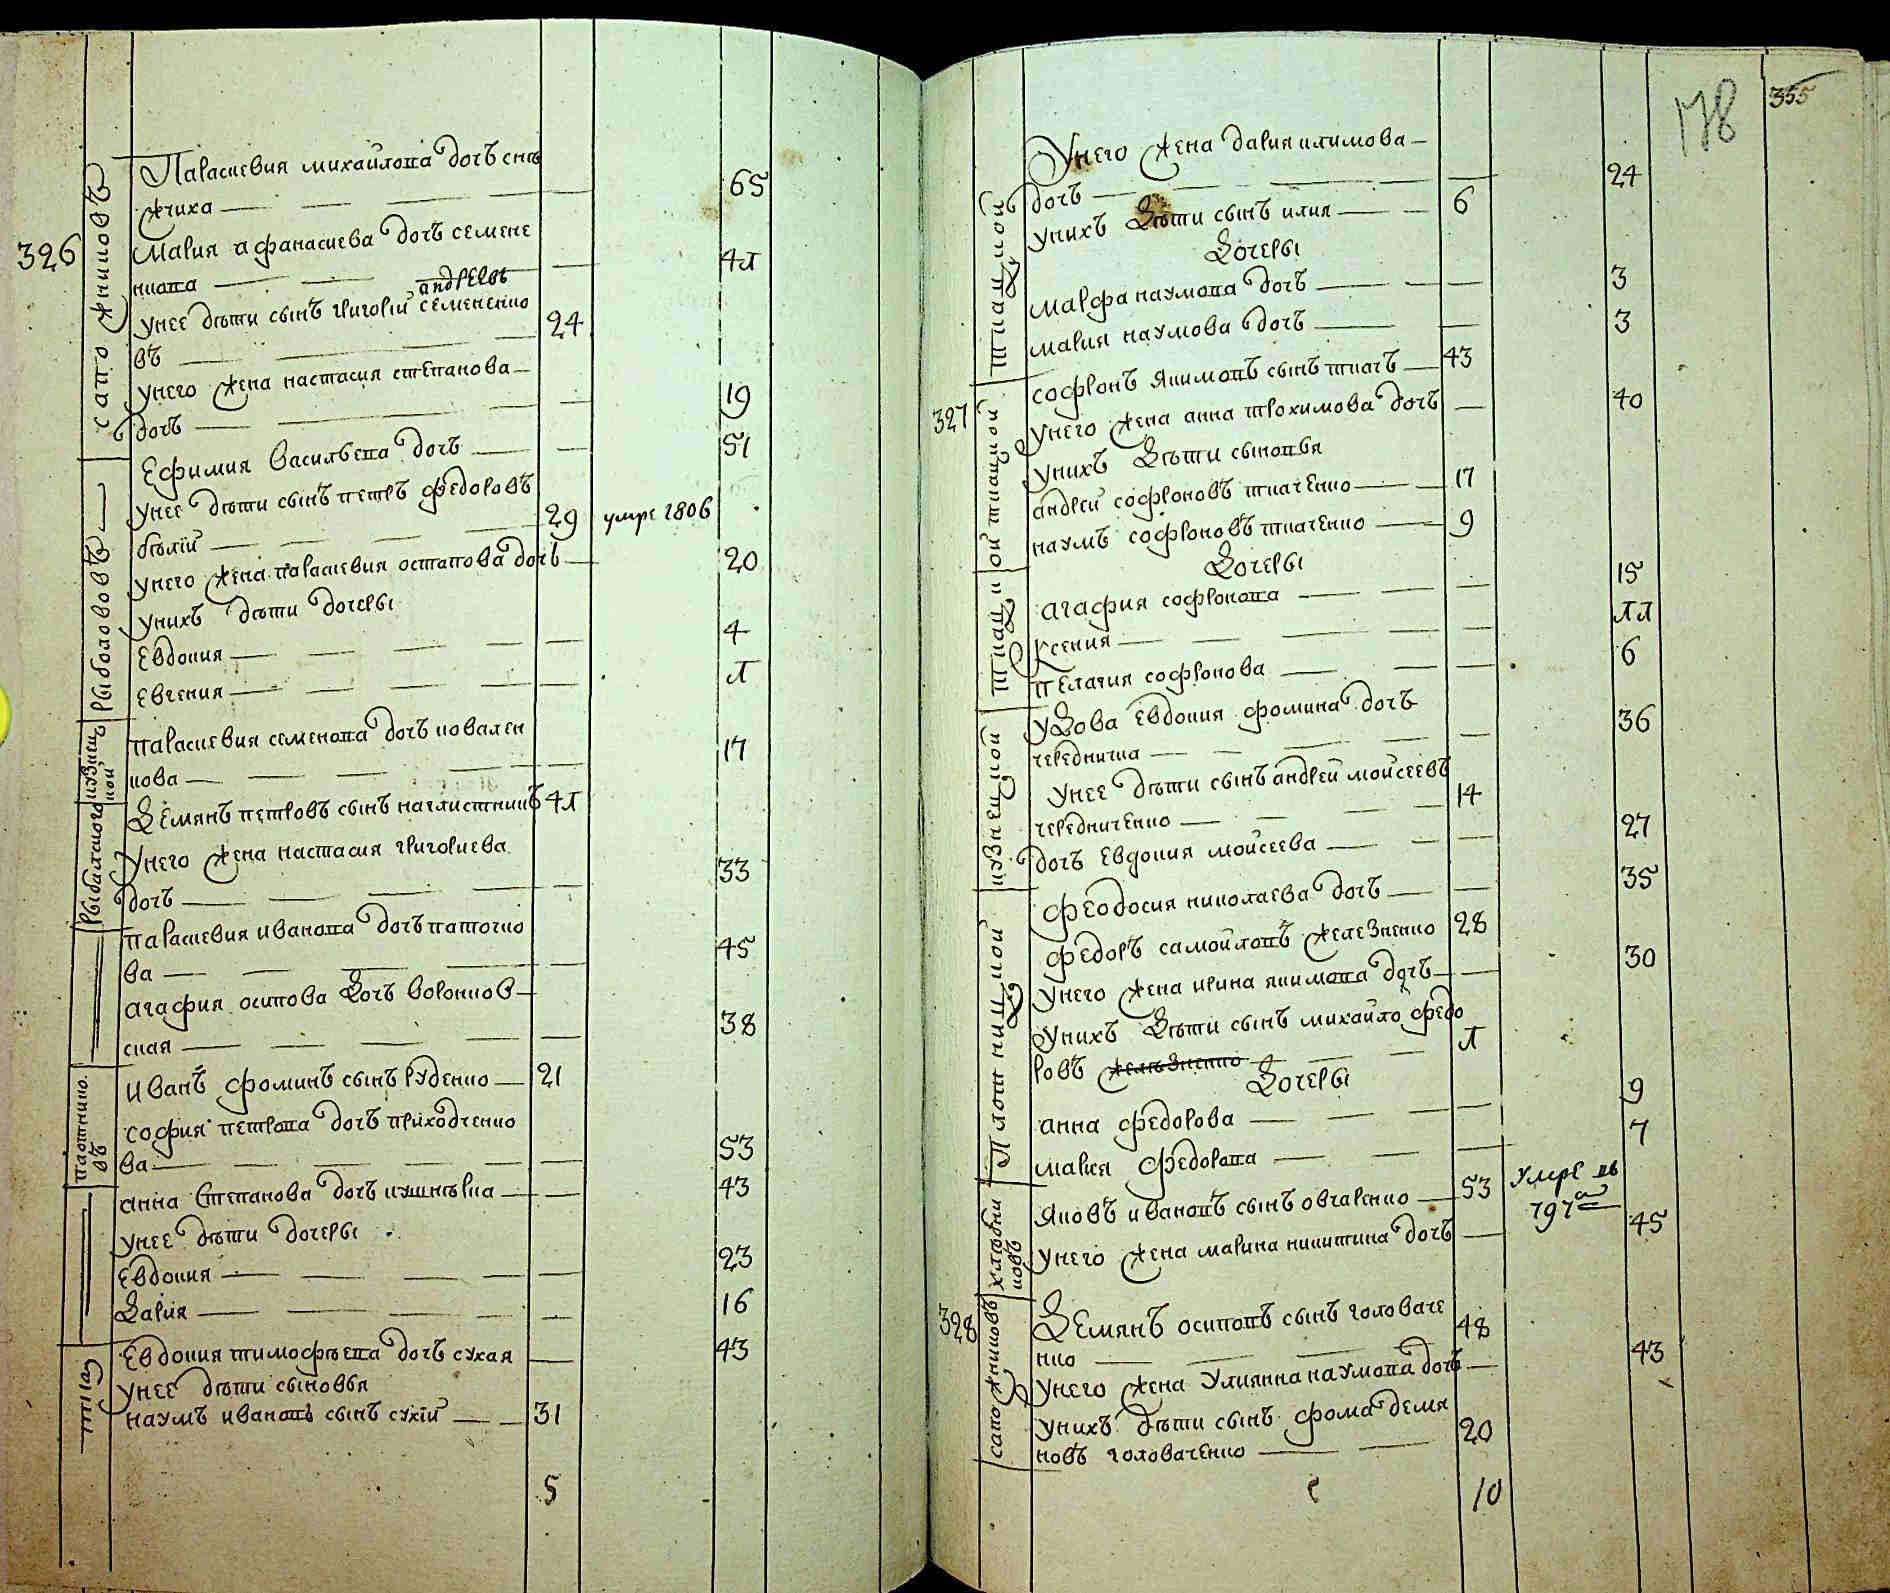 326
сапожниковъ
Параскевия михайлова дочъ сню
жчиха
65
мария афанасиева дочъ семене
нкова
41
андреевъ
унее дѣти сынъ григорий семененко
въ
24
унего жена настасия степанова
дочъ
19
рыболововъ
Ефимия василъева дочъ
51
унее дѣти сынъ петръ федоровъ
бѣлий
29
умре 1806
унего жена параскевия остапова дочъ
20
унихъ дѣти дочеры
Евдокия
4
евгения
1
кузнец
кой
параскевия семенова дочъ ковален
кова
17
рыбалского
Демянъ петровъ сынъ наглистникъ
41
унего жена настасия григориева
дочъ
33
параскевия иванова дочъ паточко
ва
45
агафия осипова дочъ воронков
ская
38
плотнико
въ
иванъ фоминъ сынъ руденко
21
софия петрова дочъ приходченко
ва
53
анна степанова дочъ кушнѣрка
43
унее дѣти дочеры
Евдокия
23
Дария
16
ткач
Евдокия тимофѣева дочъ сухая
43
унее дѣти сыновья
наумъ ивановъ сынъ сухий
31
5
178
355
ткацкой
Унего жена дария климова
дочъ
24
унихъ дѣти сынъ илия
6
Дочеры
марфа наумова дочъ
3
мария наумова дочъ
3
327
софронъ якимовъ сынъ ткачъ
43
унего жена анна трохимова дочъ
40
унихъ дѣти сыновья
андрей софроновъ ткаченко
17
наумъ софроновъ ткаченко
9
Дочеры
агафия софронова
15
ксения
11
пелагия софронова
6
кузнецкой
удова евдокия фомина дочъ
чередничка
36
унее дѣти сынъ андрей мойсеевъ
чередниченко
14
дочъ евдокия мойсеева
27
плотницкой
феодосия николаева дочъ
35
федоръ самойловъ железненко
28
унего жена ирина якимова дочъ
30
унихъ дѣти сынъ михайло федо
ровъ желѣзненко
1
Дочеры
анна федорова
9
мария федорова
7
хлѣбни
ковъ
яковъ ивановъ сынъ овчаренко
53
умре въ
797
унего жена марина никитина дочъ
45
328
сапожниковъ
Демянъ осиповъ сынъ головаче
нко
48
унего жена улиянна наумова дочъ
43
унихъ дѣти сынъ фома демя
новъ головаченко
20
10